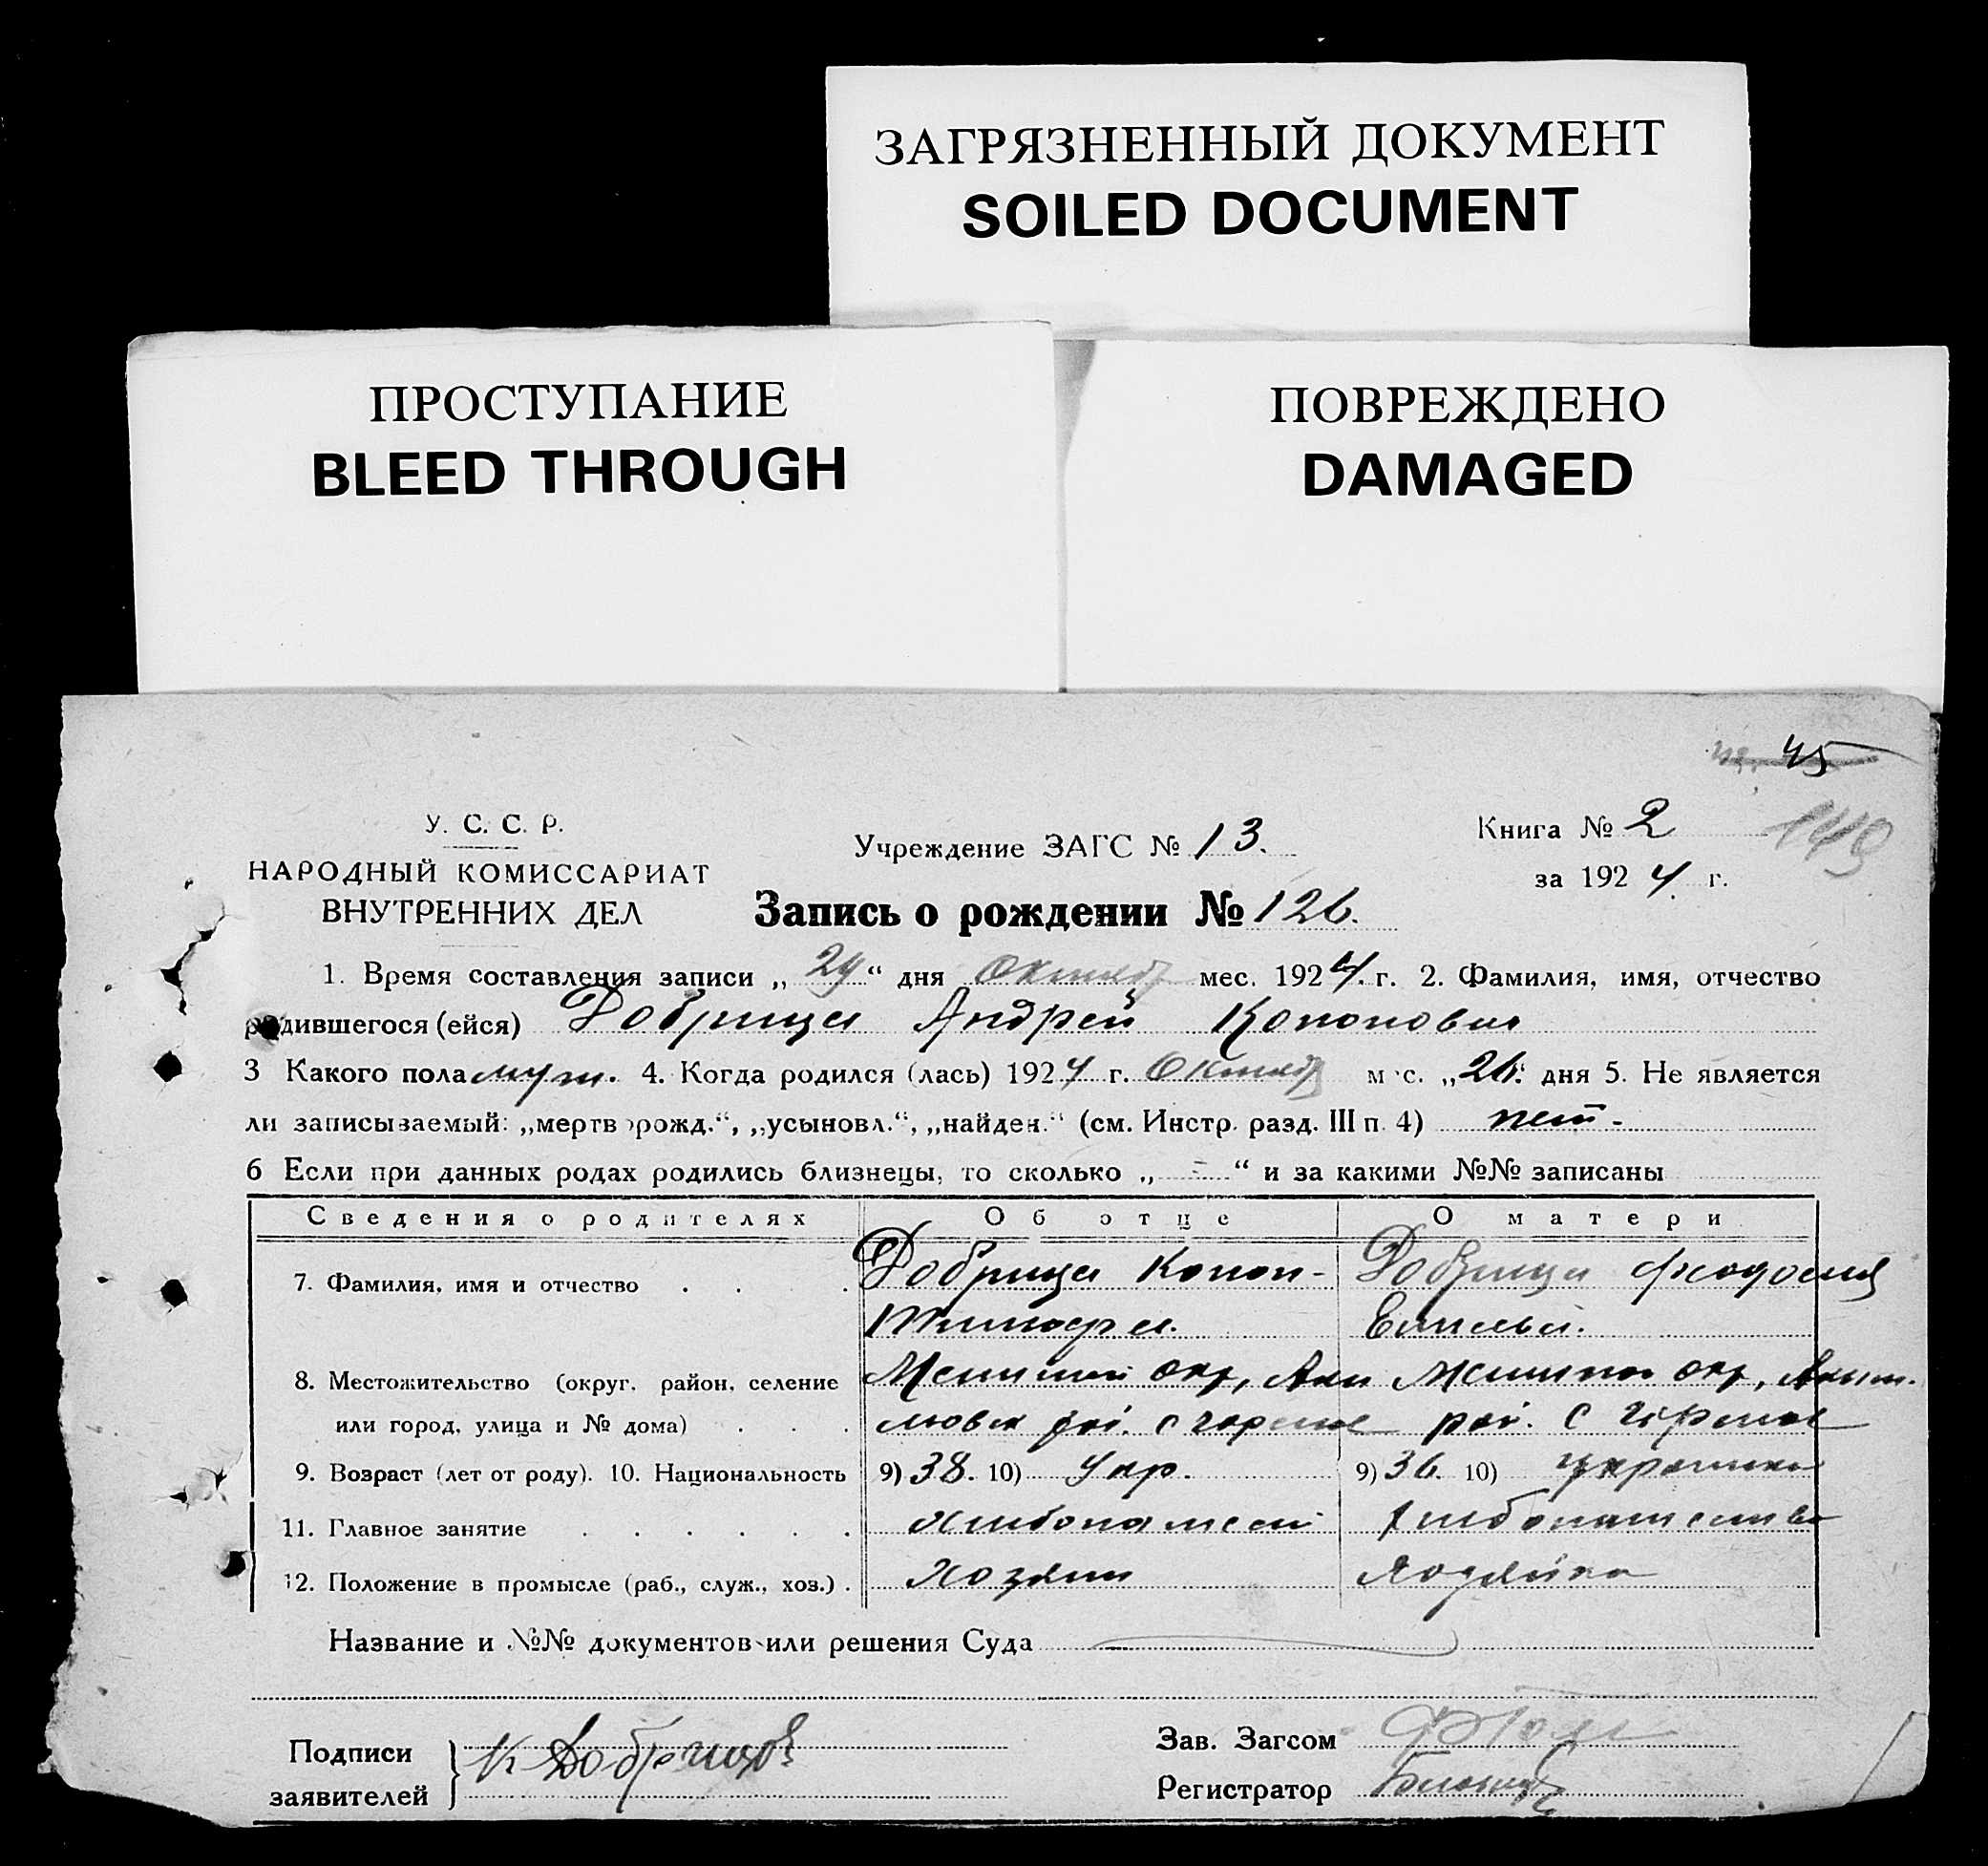 ЗАГРЯЗНЕННЫЙ ДОКУМЕНТ
SOILED DOCUMENT
ПРОСТУПАНИЕ
BLEED THROUGH
ПОВРЕЖДЕНО
DAMAGED
45
149
У. С. С. Р.
НАРОДНЫЙ КОМИССАРИАТ
ВНУТРЕННИХ ДЕЛ
Учреждение ЗАГС № 13.
Книга № 2
за 1924 г.
Запись о рождении № 126.
1. Время составления записи „29“ дня Октябр мес. 1924 г. 2. Фамилия, имя, отчество
родившегося (ейся) Добрица Андрей Кононович
3 Какого пола муж. 4. Когда родился (лась) 1924 г. Октябр мес. „26“ дня 5. Не является
ли записываемый: „мертворожд.“, „усыновл.“, „найден.“ (см. Инстр. разд. III п. 4) нет.
6 Если при данных родах родились близнецы, то сколько „ – “ и за какими №№ записаны
Сведения о родителях Об отце О матери
7. Фамилия, имя и отчество Добрица Конон Добрица Феодосия
Тимоф. Емельи.
8. Местожительство (округ, район, селение окр, окр,
или город, улица и № дома) рай. с рай. с
9. Возраст (лет от роду). 10. Национальность 9) 38. 10) Укр. 9) 36. 10) Украинка
11. Главное занятие
12. Положение в промысле (раб., служ., хоз.) Хозяин Хозяйка
Название и №№ документов или решения Суда
Подписи
заявителей
К Добрица
Зав. Загсом
Регистратор